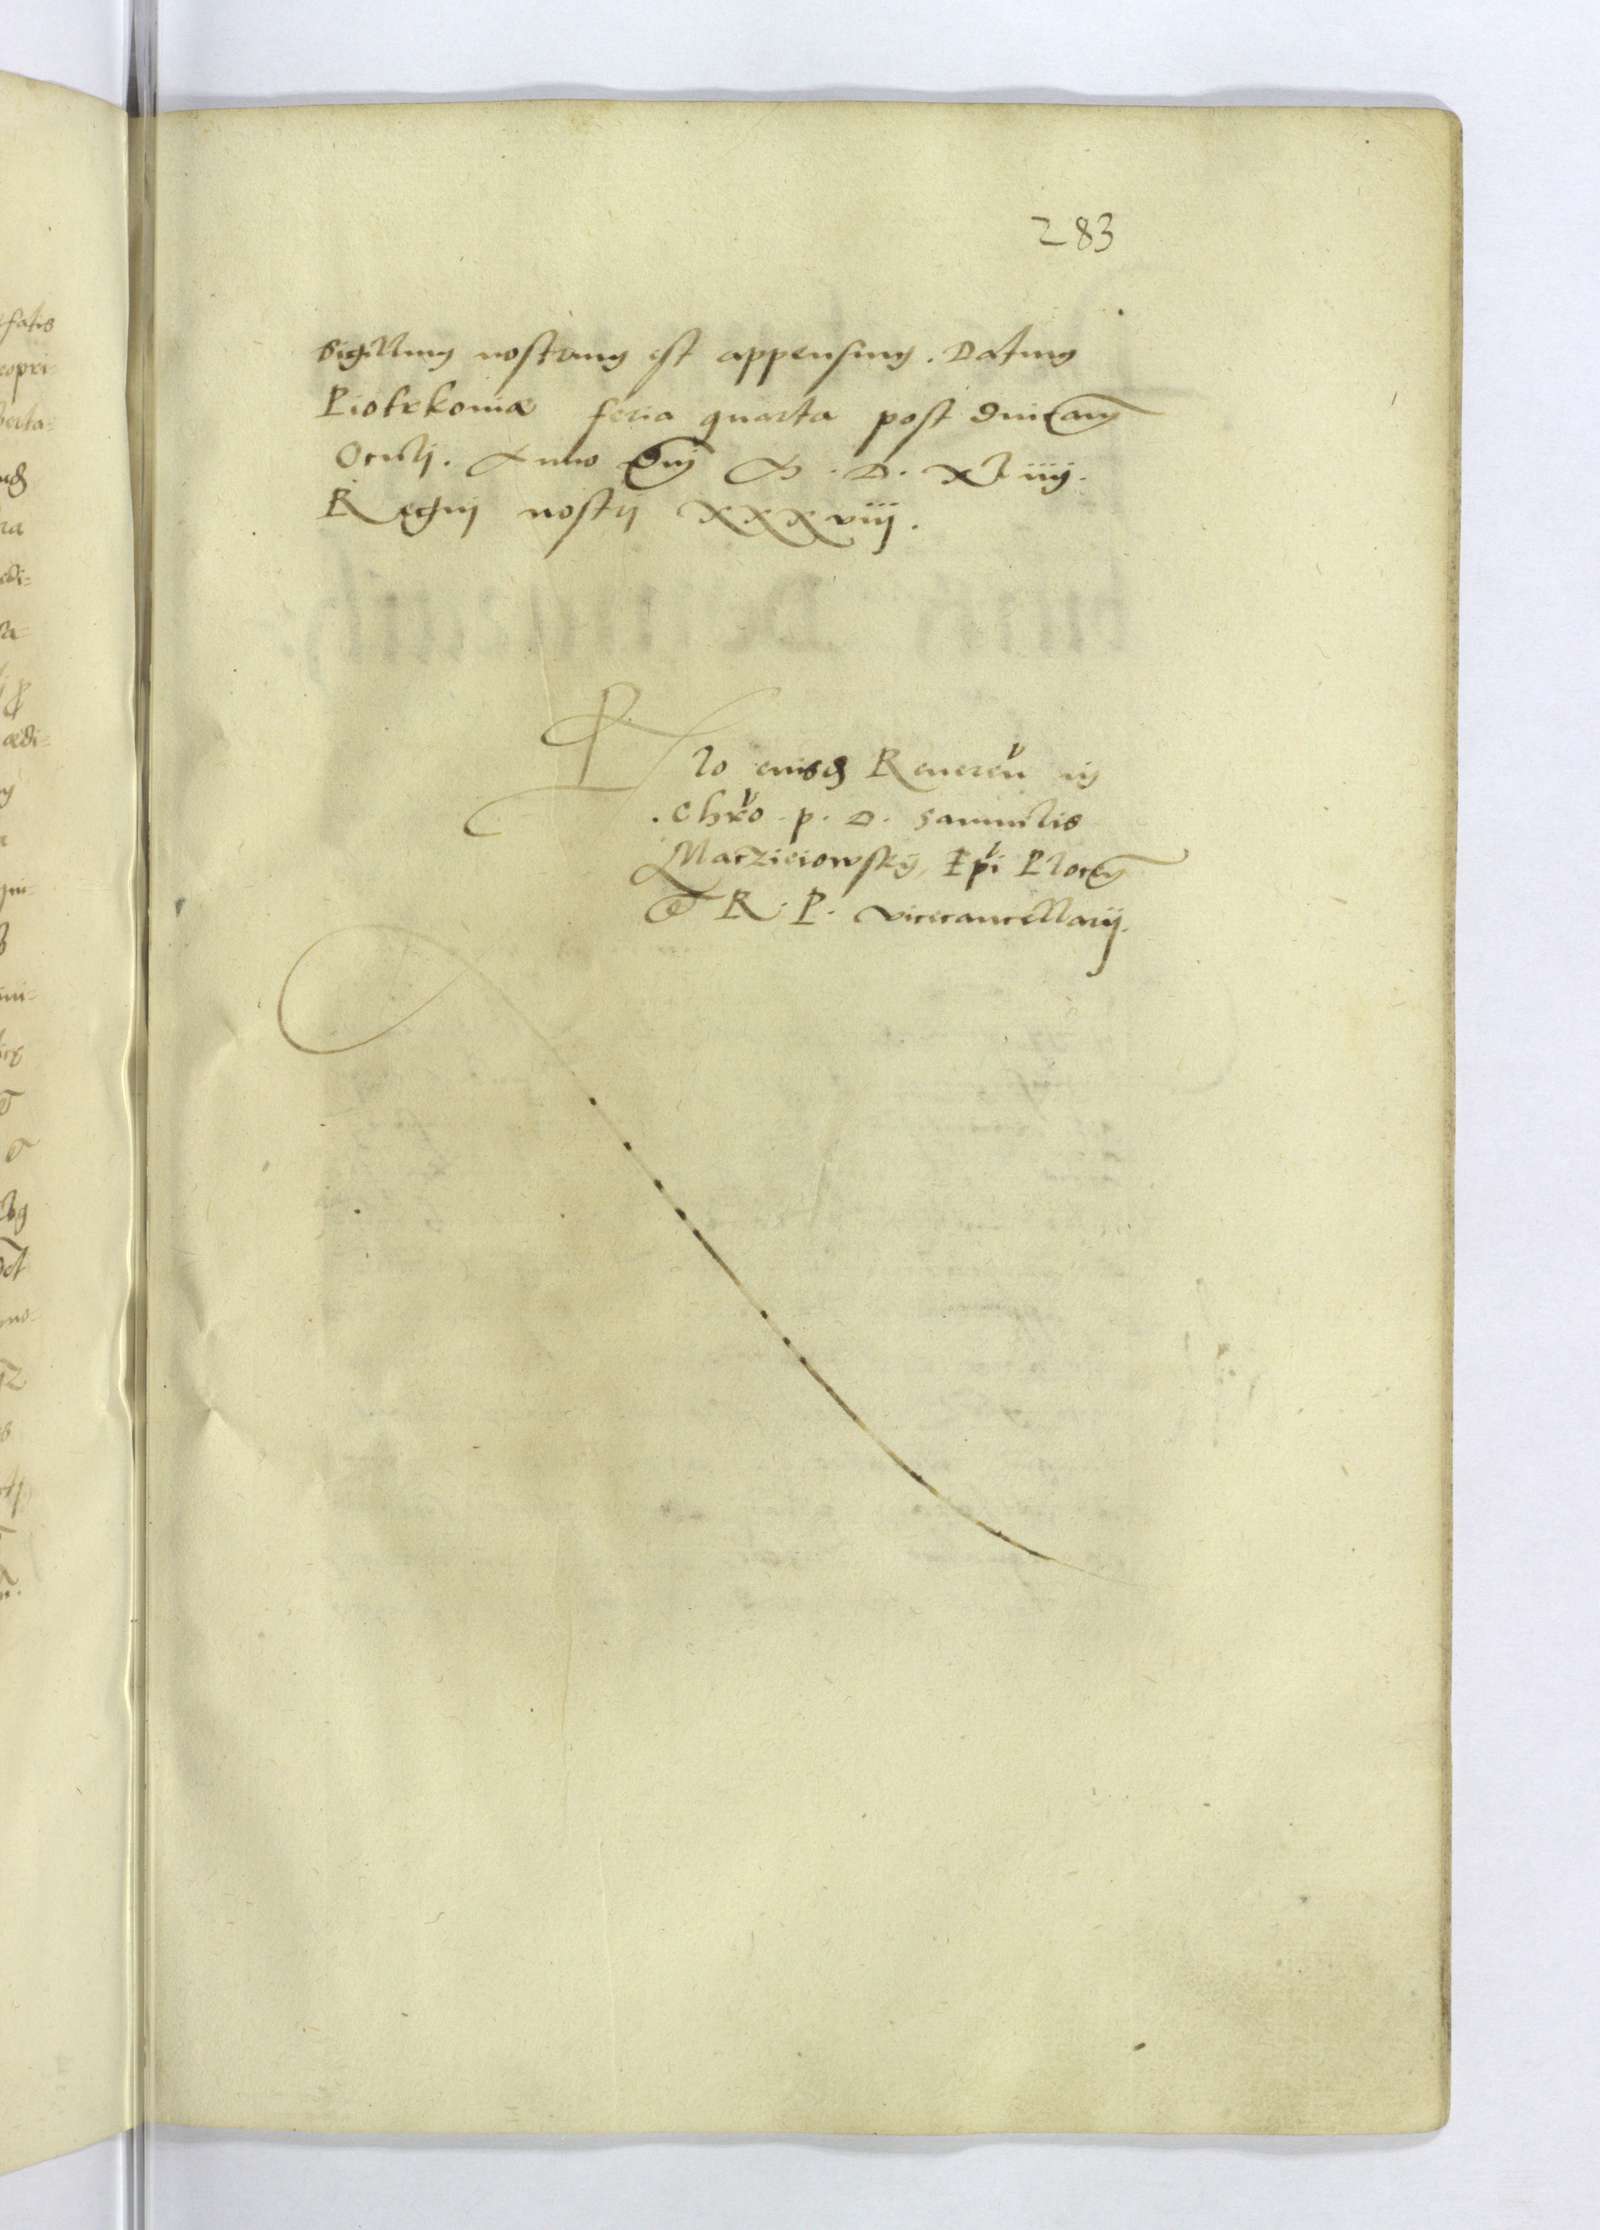 283
Sigillum nostrum est appensum. Datum
Piotrkoviæ feria quarta post dnicam
Oculi. Anno dni M. D. XLiiij.
Regni nostri XXXviij.
Rlo eiusd Reveren in
Chro. p. D. Samuelis
Maczieiowsky, Epi Plocen
et R. P. vicecancellarij.